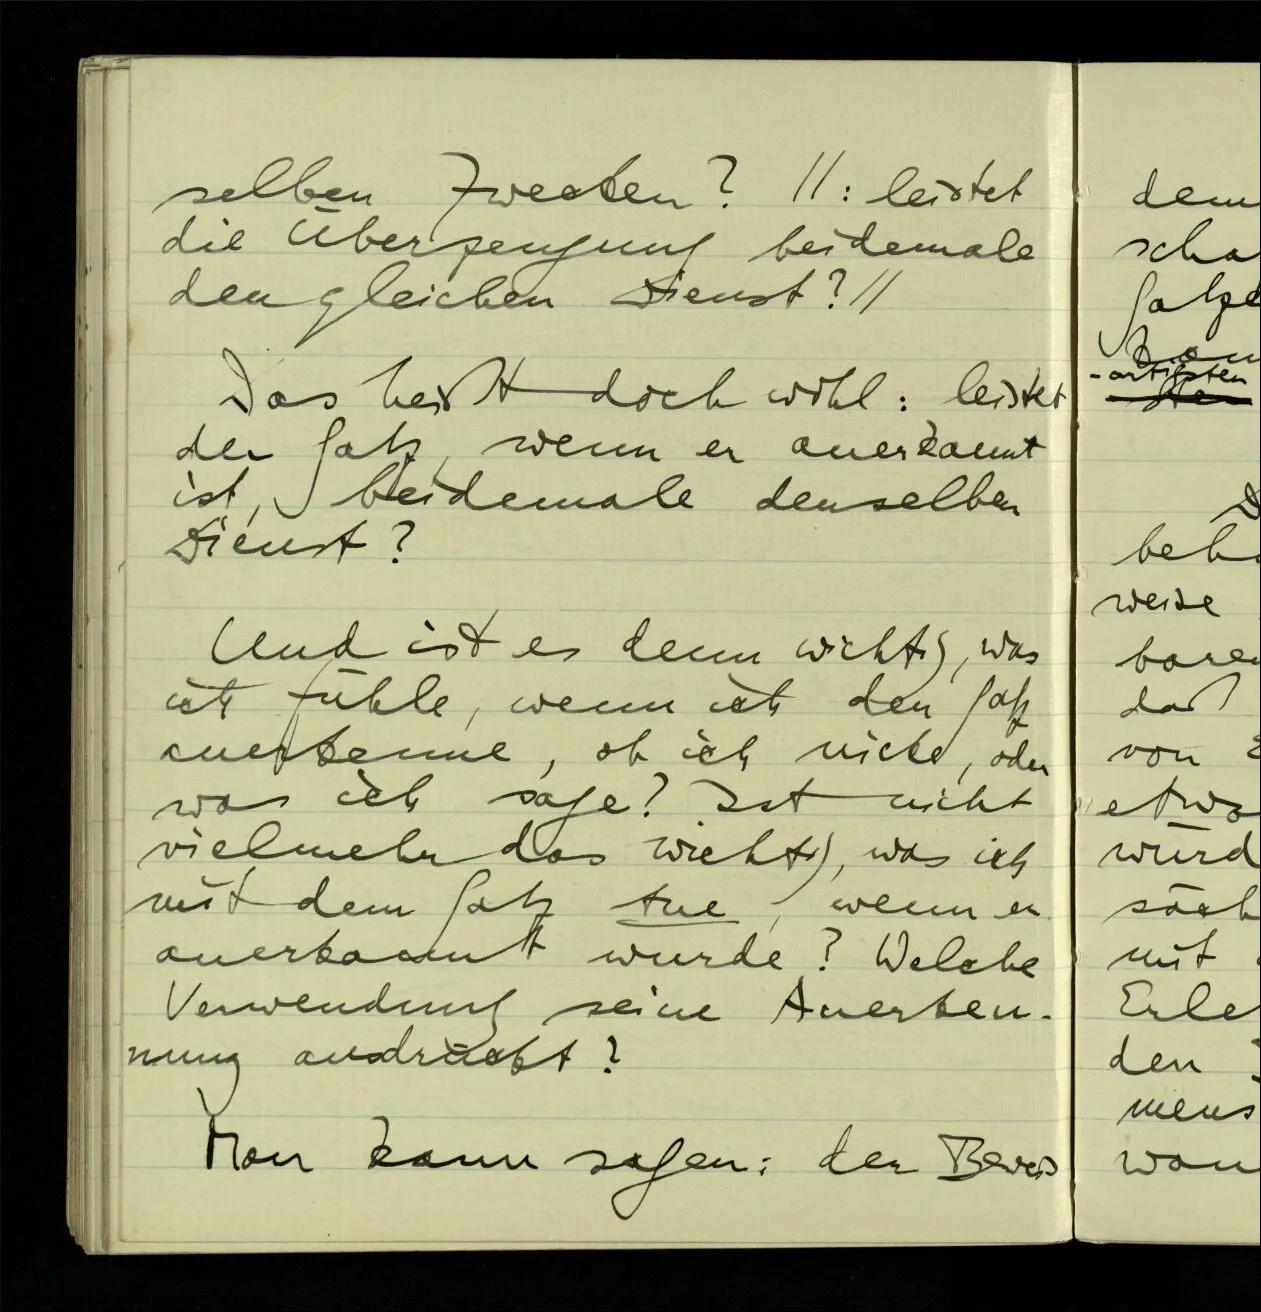 selben Zwecken? //: leistet
die Überzeugung beidemale
den gleichen Dienst?//
Das heißt doch wohl: leistet
der Satz, wenn er anerkannt
ist, beidemale denselben
Dienst?
Und ist es denn wichtig, was
ich fühle, wenn ich den Satz
anerkenne, ob ich nicke, oder
was ich sage? Ist nicht
vielmehr das wichtig, was ich
mit dem Satz tue, wenn er
anerkannt wurde? Welche
Verwendung seine Anerken-
nung ausdrückt?
Man kann sagen: der Beweis
dem
scha
Satze
-artigsten
beh
weise
baren
daß
von
etwa
würd
säch
mit
Erle
den
mens
wan